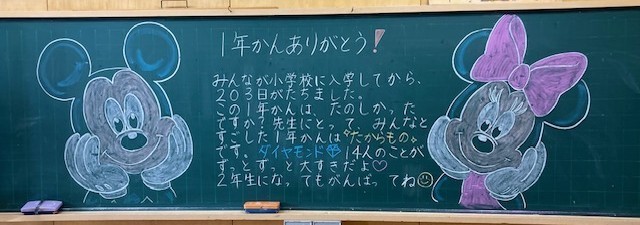 1年かんありがとう!
みんなが小学校に入学してから、
203日がたちました。
この1年かんは、たのしかった
ですか?先生にとって、みんなと
すごした1年かんは"たからもの"
です。ダイヤモンド 14人のことが
ずっとずっと大すきだよ♡
2年生になってもがんばってね☺